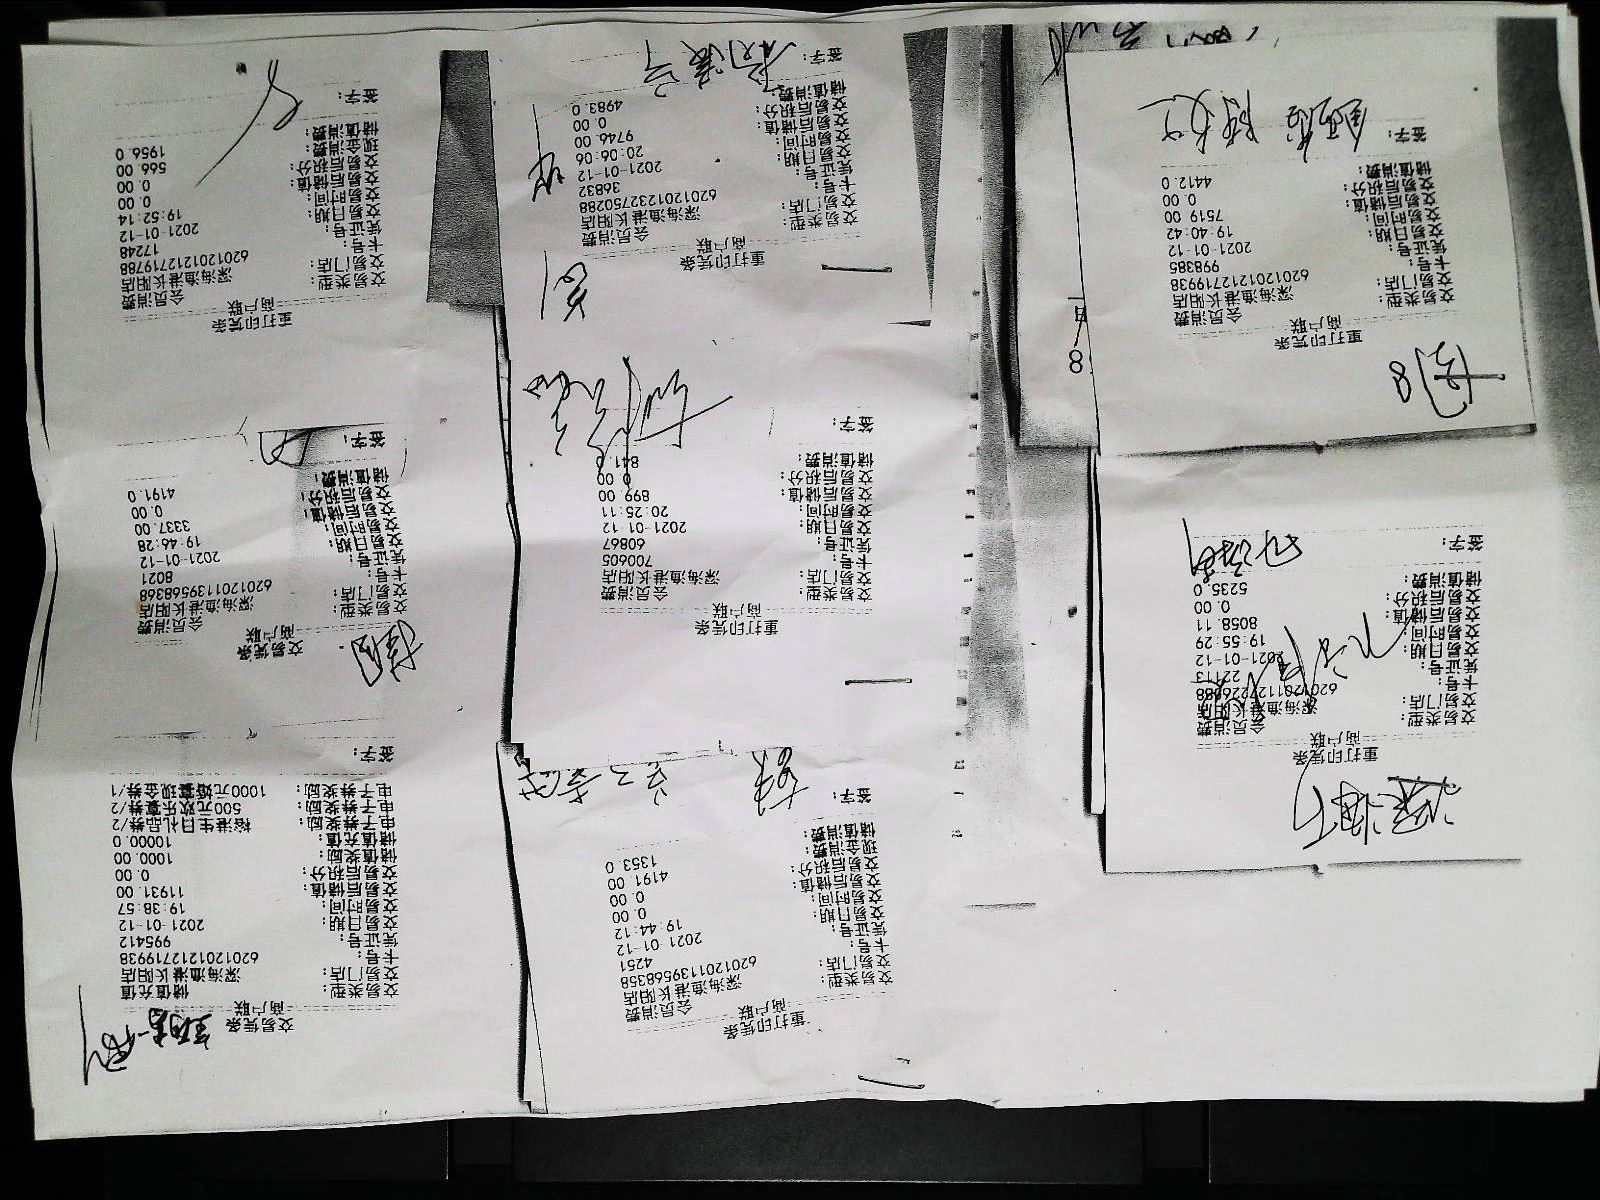 重打印凭条
商户联
交易类型: 会员消费
交易门店: 深海渔港长阳店
卡号: 6201201127226088
凭证号: 22113
交易日期: 2021-01-12
交易时间: 19:55:29
交易后储值: 8058.11
交易后积分: 0.00
储值消费: 5235.0
签字:
8
重打印凭条
商户联
交易类型: 会员消费
交易门店: 深海渔港长阳店
卡号: 6201201212719938
凭证号: 9983385
交易日期: 2021-01-12
交易时间: 19:40:42
交易后储值: 7519.00
交易后积分: 0.00
储值消费: 4412.0
签字:
重打印凭条
商户联
交易类型: 会员消费
交易门店: 深海渔港长阳店
卡号: 6201201139568358
凭证号: 4251
交易日期: 2021-01-12
交易时间: 19:44:12
交易后储值: 0.00
交易后积分: 0.00
现金消费: 4191.00
储值消费: 1353.0
签字:
重打印凭条
商户联
交易类型: 会员消费
交易门店: 深海渔港长阳店
卡号: 700605
凭证号: 60867
交易日期: 2021-01-12
交易时间: 20:25:11
交易后储值: 899.00
交易后积分: 0.00
储值消费: 841.0
签字:
重打印凭条
商户联
交易类型: 会员消费
交易门店: 深海渔港长阳店
卡号: 6201201232750288
凭证号: 36832
交易日期: 2021-01-12
交易时间: 20:06:06
交易后储值: 9746.00
交易后积分: 0.00
储值消费: 4983.0
签字:
交易凭条
商户联
交易类型: 储值充值
交易门店: 深海渔港长阳店
卡号: 6201201212719938
凭证号: 995412
交易日期: 2021-01-12
交易时间: 19:38:57
交易后储值: 11931.00
交易后积分: 0.00
储值奖励: 1000.00
储值充值: 10000.0
电子券奖励: 裕湛生日礼品券/2
电子券奖励: 500元欢乐宴券/2
电子券奖励: 1000元婚宴现金券/1
签字:
交易凭条
商户联
交易类型: 会员消费
交易门店: 深海渔港长阳店
卡号: 6201201139568368
凭证号: 8021
交易日期: 2021-01-12
交易时间: 19:46:28
交易后储值: 3337.00
交易后积分: 0.00
储值消费: 4191.0
签字:
重打印凭条
商户联
交易类型: 会员消费
交易门店: 深海渔港长阳店
卡号: 6201201212719788
凭证号: 17248
交易日期: 2021-01-12
交易时间: 19:52:14
交易后储值: 0.00
交易后积分: 0.00
现金消费: 566.00
储值消费: 1956.0
签字: